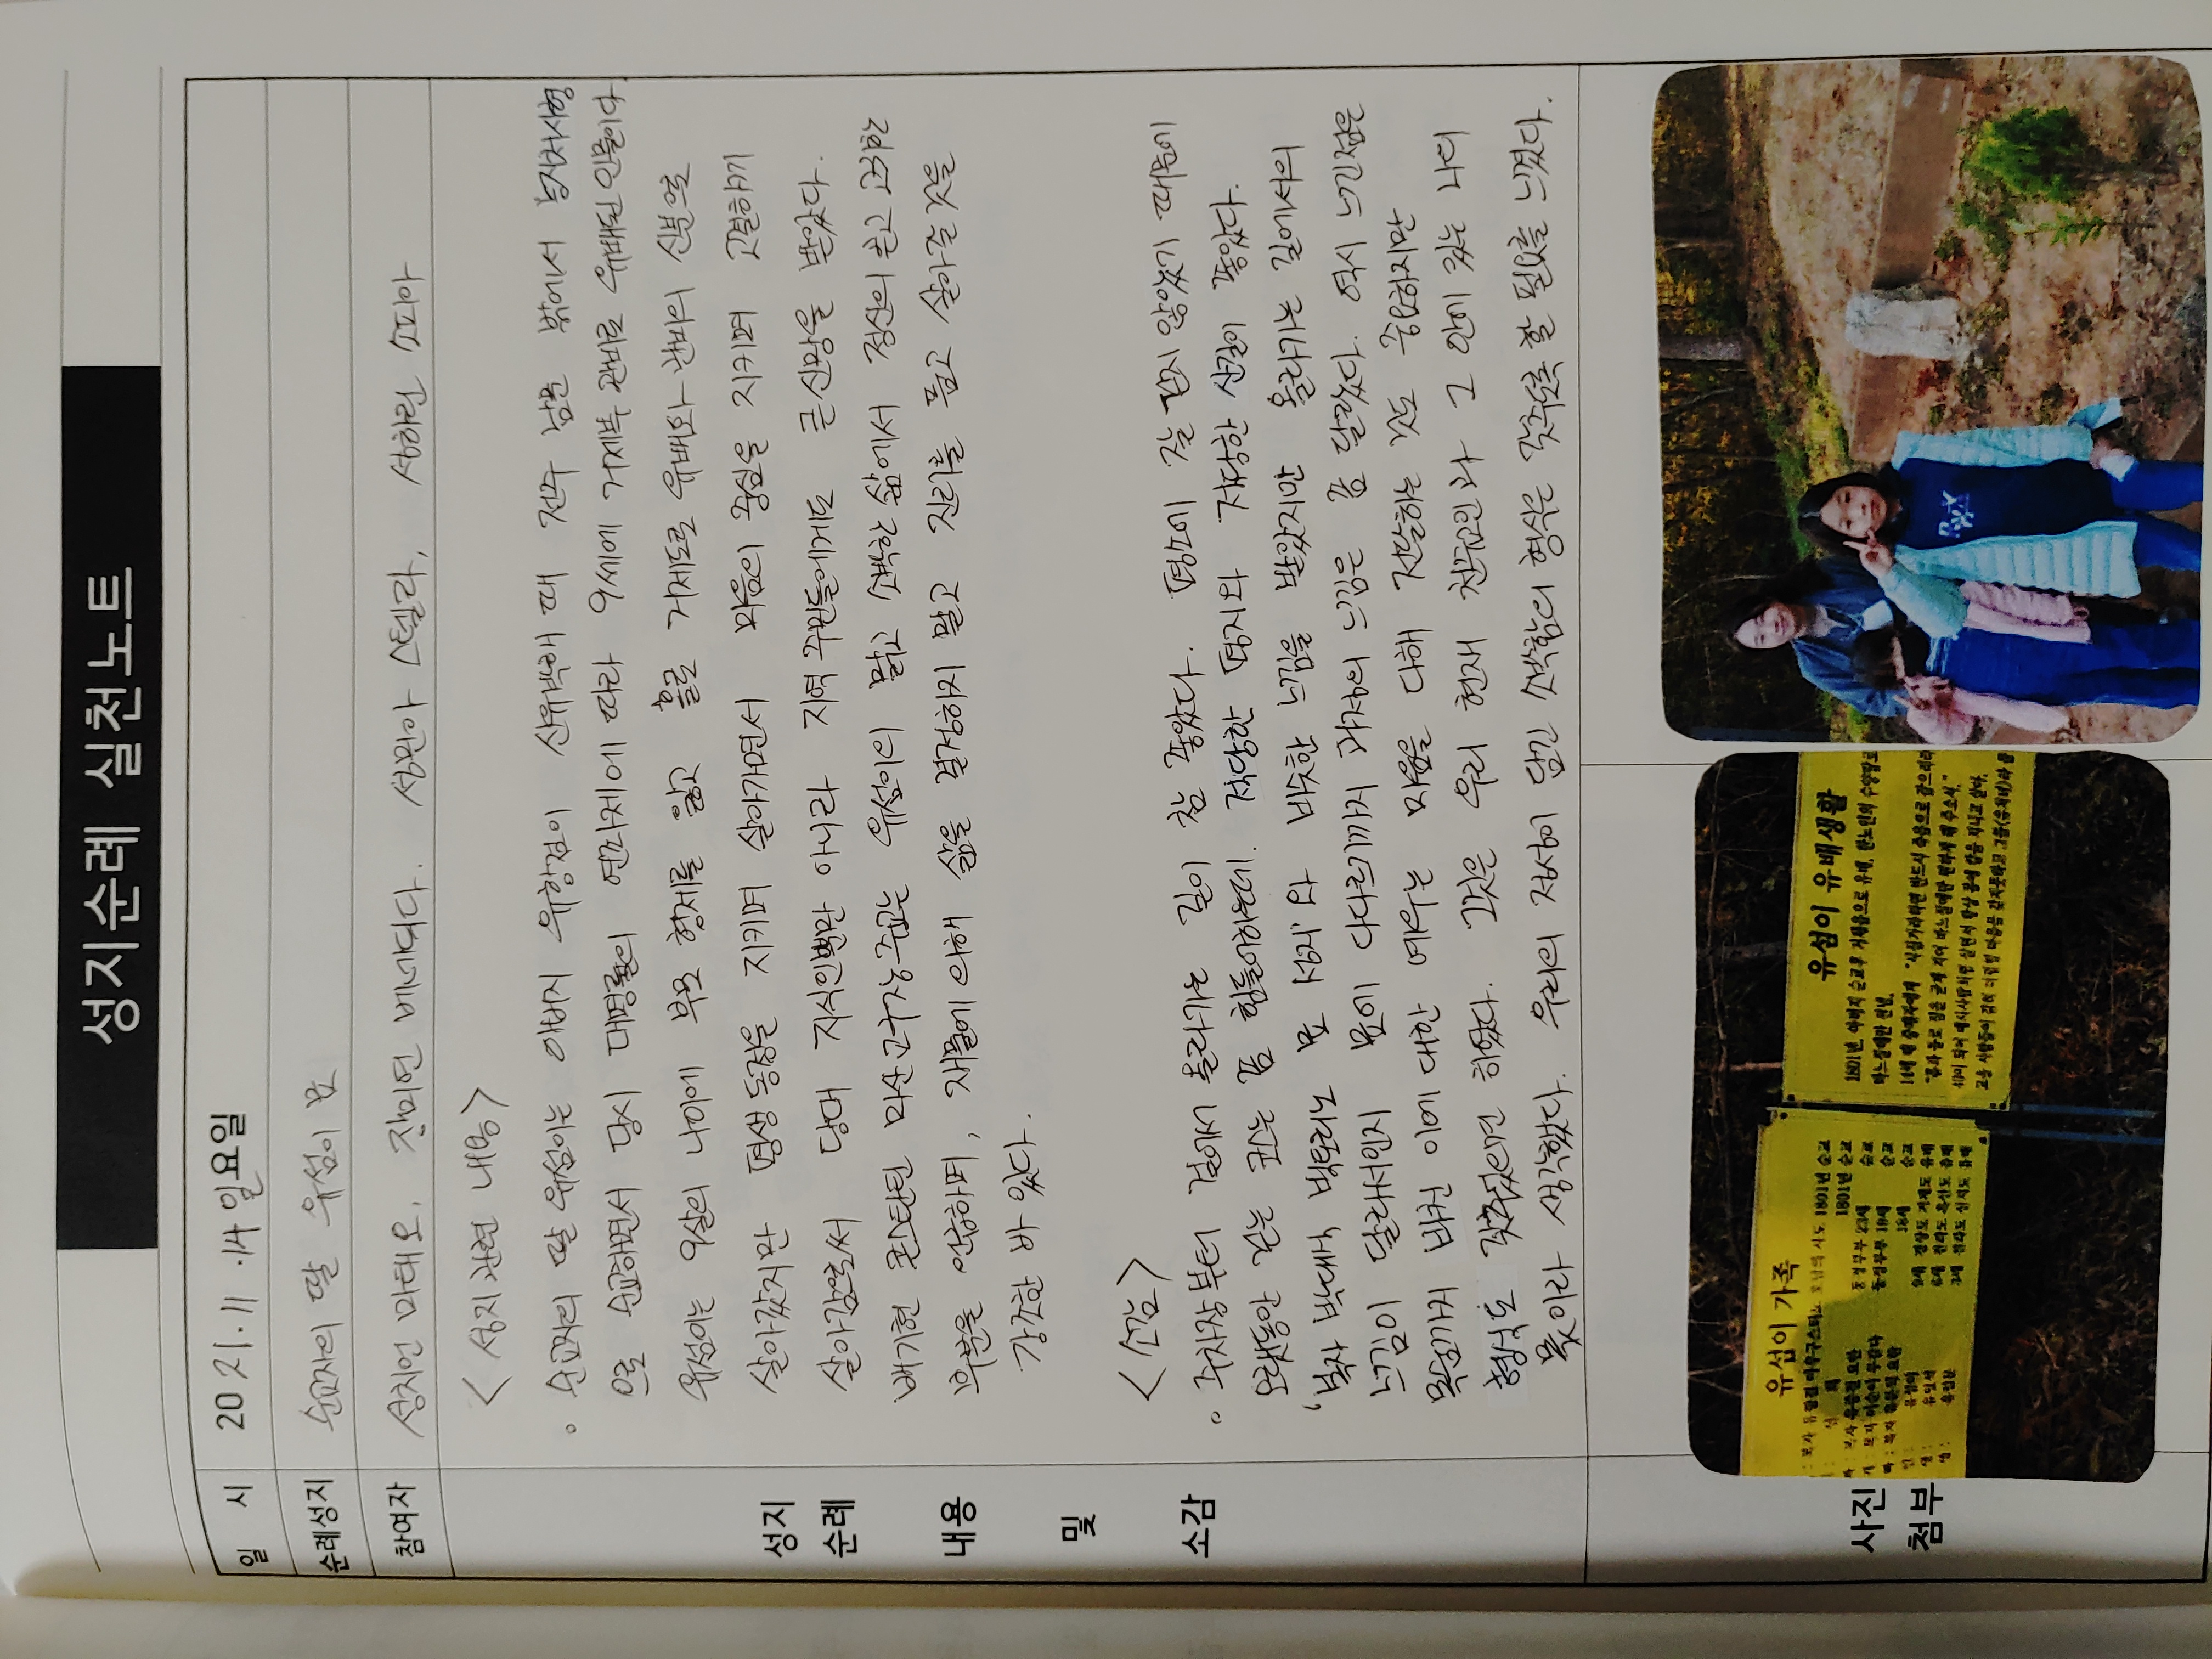 성지순례 실천노트
일 시
2021.11.14 일요일
순례성지
순교자의 딸 유섬이 묘
참여자
성치언 마태오, 장미연 베네딕다. 성민아 스텔라, 성하린 소피아
<성지관련 내용>
◦ 순교자의 딸 유섬이는 아버지 유항검이 신유박해 때 전주 남문 밖에서 능지처사형
으로 순교하면서 당시 대명률의 연좌제에 따라 9세에 거제부 관비로 유배된 인물이다.
유섬이는 9살의 나이에 부모 형제를 잃고 홀로 거제도로 유배와 관비의 신분으로
살아갔지만 평생 동정을 지키며 살아가면서 마음의 중심을 지키며 고결하게
살아감으로써 당대 지식인뿐만 아니라 지역 주민들에게도 큰 신망을 받았다.
배기현 콘스탄틴 마산교구장 주교는 유섬이의 맑고 소박한 삶에서 정신의 곧고 고귀한
부분을 언급하며, 재물에 의해 삶을 결정하지 말고 진리를 품고 살아줄 것을
강조한 바 있다.
<소감>
◦ 주차장부터 걸어서 올라가는 길이 참 좋았다. 평소에 잘 걷지 않았기 때문에
오랫동안 걷는 코스는 좀 힘들어하는데. 적당한 평지와 적당한 산길이 좋았다.
'복자 박대식 빅토리노 묘 성지'와 비슷한 느낌을 받았지만 올라가는 길에서의
느낌이 달라서인지 묘에 다다르기까지 과정의 느낌은 좀 달랐다. 역시 느낀점은
목숨까지 바친 이에 대한 예우는 마음을 다해 전달하는 것도 중요하지만
형식도 갖추었으면 하였다. 그것은 우리 현재 천주교인과 그 안에 있는 나의
몫이라 생각했다. 우리의 정성이 담긴 소박함의 형식은 갖추도록 할 필요를 느꼈다.
성지
순례
내용
및
소감
사진
첨부
유섬이 가족
: 복자 유항검 아우구스티노 호남의 사도 1801년 순교
1801년 순교
복자 유중철 요한 동정부부 23세 순교
복자 이순이 루갈다 동정부부 19세 순교
복자 유문석 요한 18세 순교
유섬이 9세 경상도 거제도 유배
유일석 6세 전라도 흑산도 유배
유일문 3세 전라도 신지도 유배
유섬이 유배생활
1801년, 아버지 순교후 거제읍으로 유배, 한노인의 수양딸로
바느질에만 전념,
"흙과 돌로 집을 굳게 지어 바느질에만 편하게 해 주소서,"